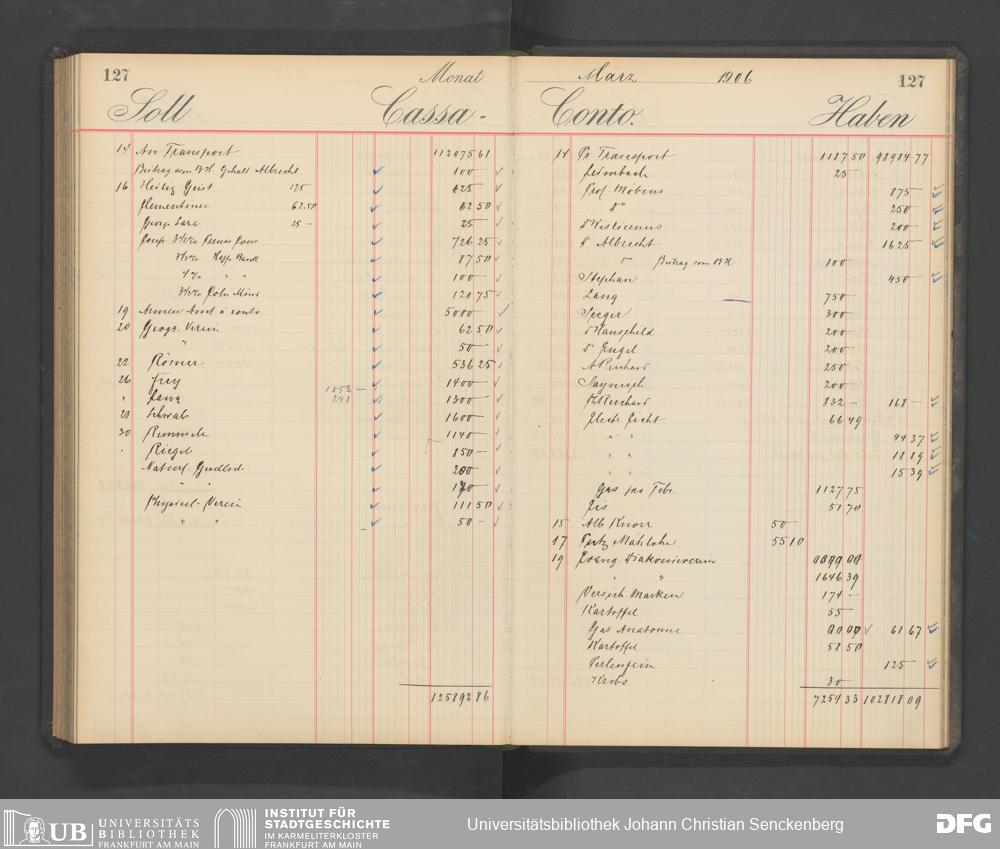 127 Monat
Soll Cassa-
14 An Transport 112075 61
Beitrag vom Gehalt Albrecht 100 -
16 Heilig Geist 125 125 -
Clementinen 62.50 62 50
Georg Sara 25 - 25 -
Coup. 3½% 726 25
3½% Hess. Bank 87 50
4% " " 100 -
3½% Cöln Mind 120 75
19 Armen Amt à conto 5000 -
20 Geogr. Verein 62 50
" 50 -
22 Römer 536 25
26 Frey 1052 - 1400 -
" Lang 248 1300 -
28 Schwab 1600 -
30 Remmele 1140 -
Riegel 850 -
Naturf. Gesellsch. 200
" " 170 -
Physical. Verein 111 50
" " 50 -
125892 86
März 1906 127
Conto. Haben
14 Pr Transport 1187 50 98984 77
Leimbach 25 -
Prof. Möbius 875 -
do 250 -
Dr Wislicenus 200 -
Dr Albrecht 1625 -
do Beitrag vom 100
Stephan 450 -
Lang 750 -
Seeger 300 -
Dr Hauscheld 200 -
Dr Engel 200 -
A Reichard 250 -
200 -
Reichard 832 - 168 -
Electr. Licht 66 49
" " 44 37
" " 18 89
" " 15 39
Gas pro Febr. 1127 75
Eis 51 70
15 Alb Knorr 50 -
17 Putz Mahlohn 55 10
19 Evang. Diakonieverein
" " 1646 39
Versich. Marken 174 -
Kartoffel 55 -
Gas Anatomie 61 67
Kartoffel 58 50
125 -
Krebs 30 -
7254 33 102818 09
UB UNIVERSITÄTS BIBLIOTHEK FRANKFURT AM MAIN
INSTITUT FÜR STADTGESCHICHTE IM KARMELITERKLOSTER FRANKFURT AM MAIN
Universitätsbibliothek Johann Christian Senckenberg
DFG